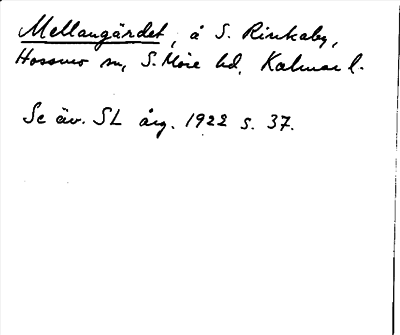 Mellangärdet, å S. Rinkaby,
Hossmo sn, S. Möre hd, Kalmar l.
Se äv. SL årg. 1922 s. 37.